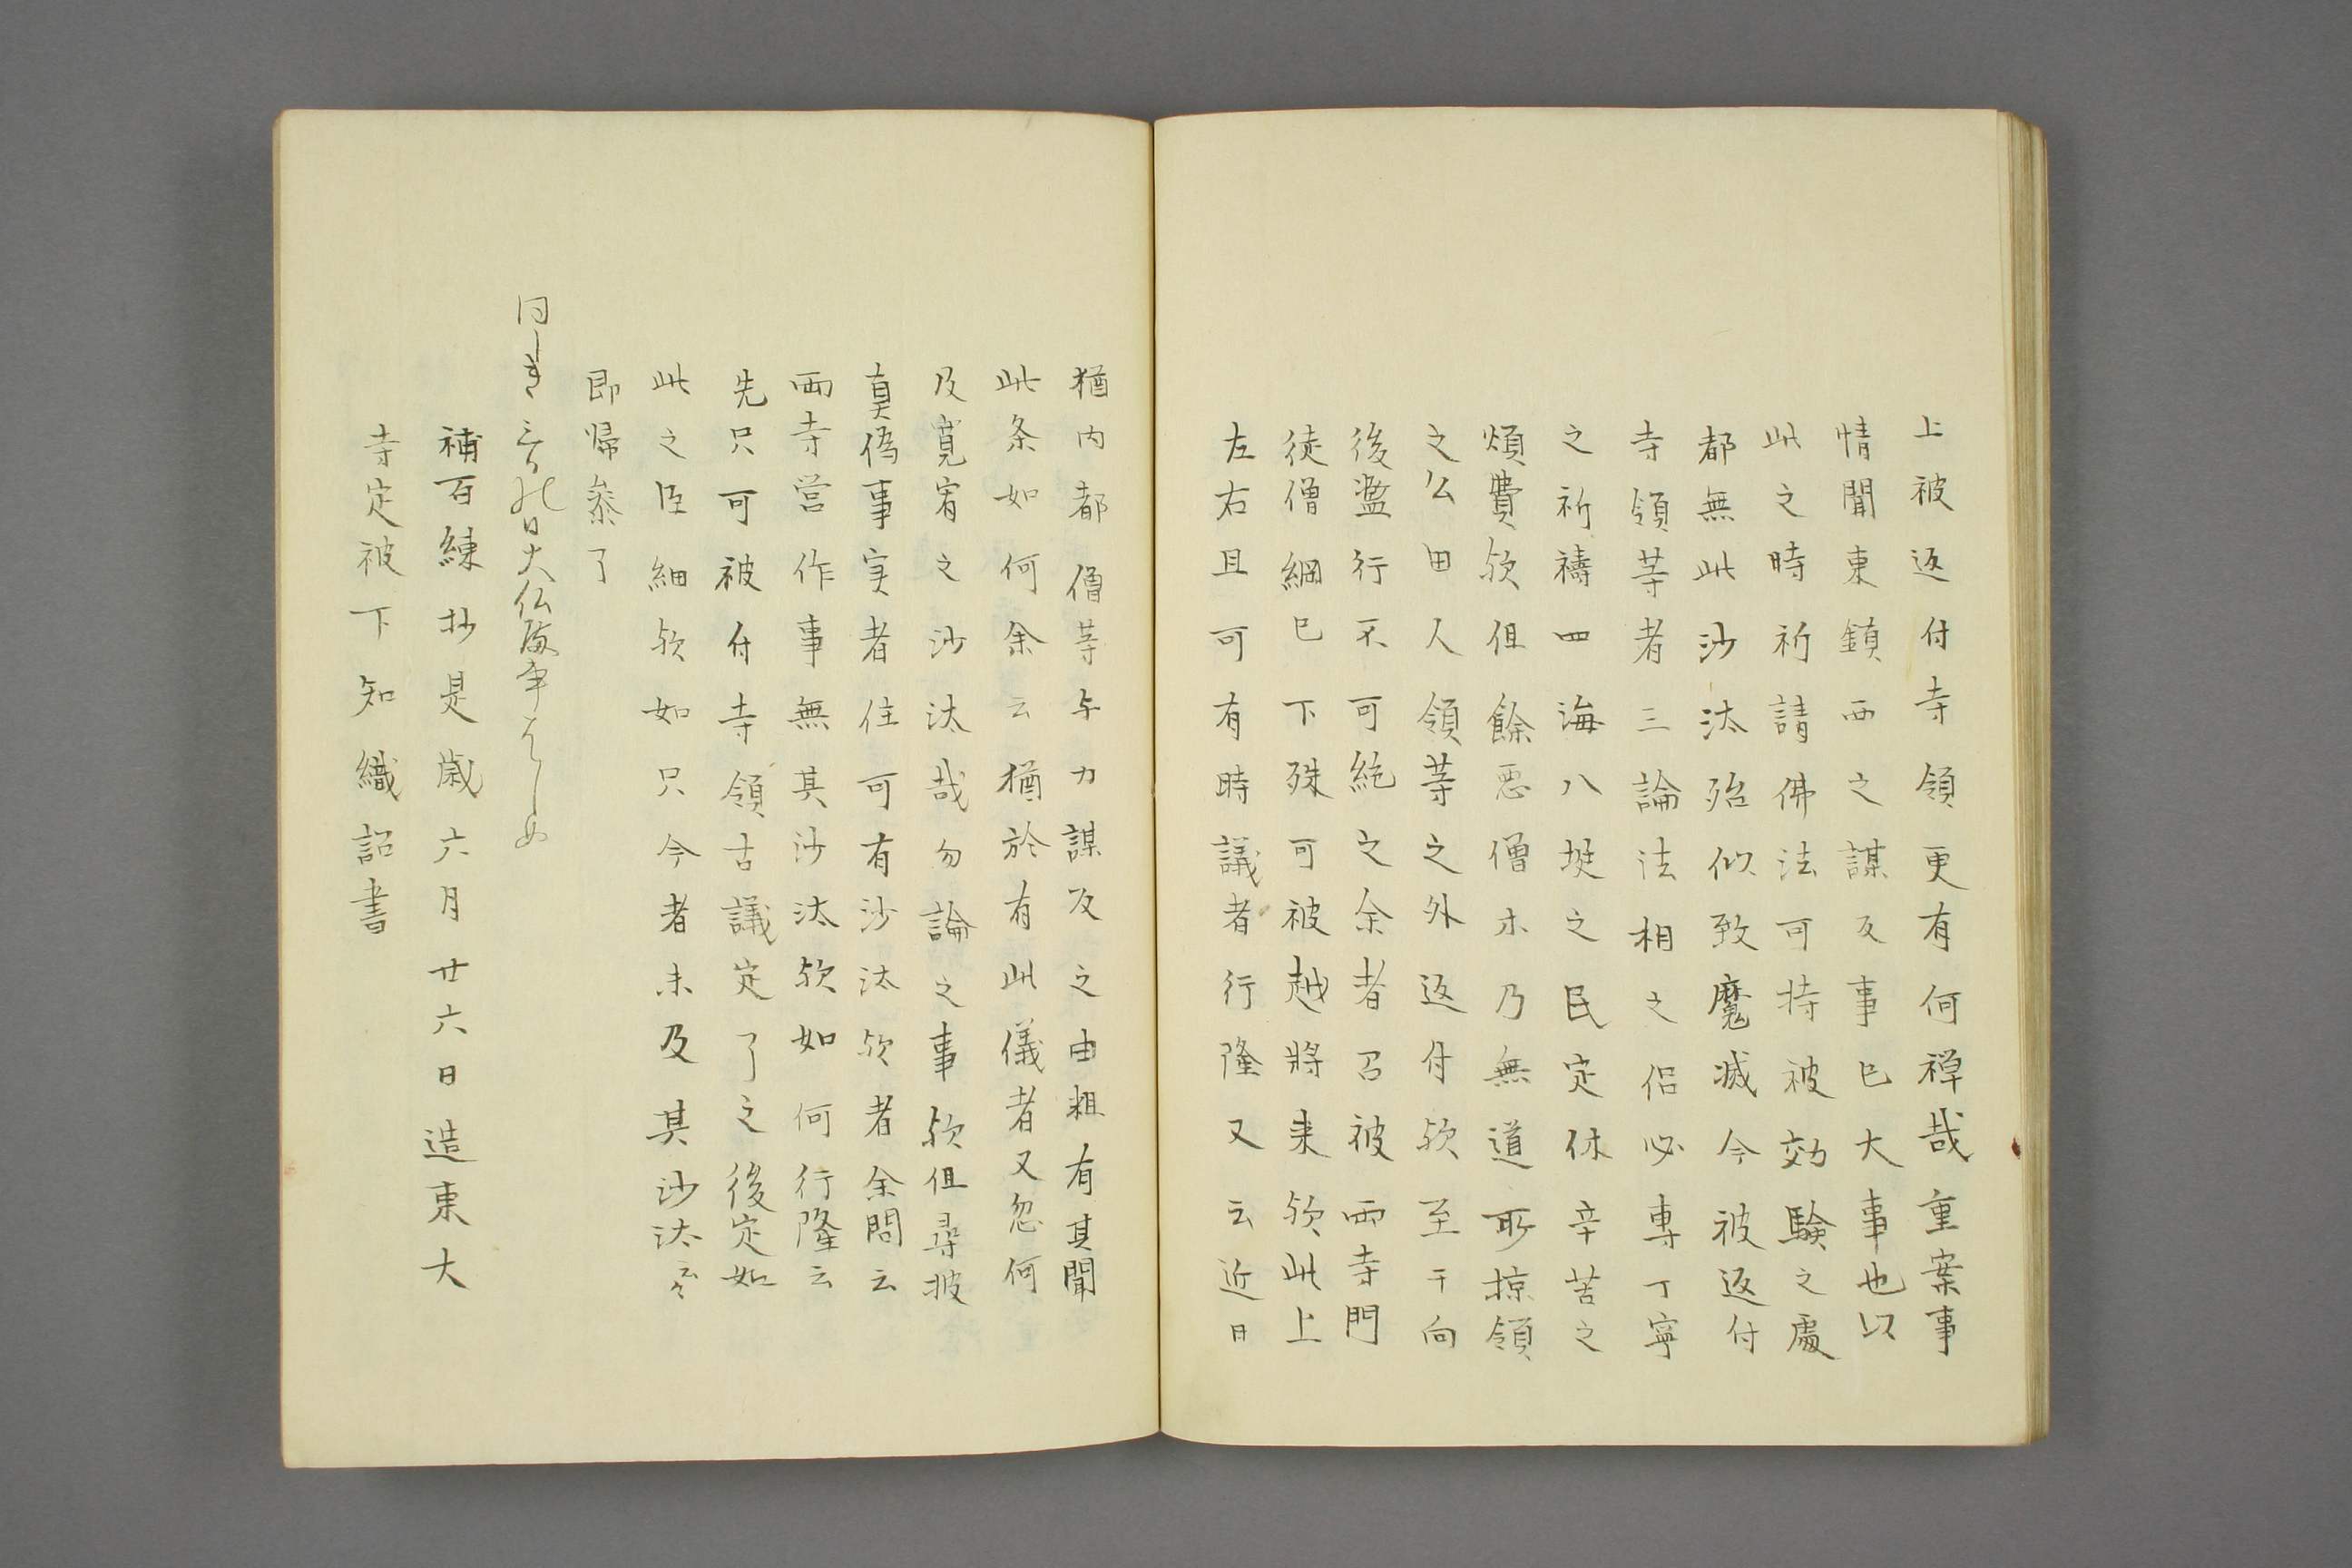 上被返付寺領更有何禅哉重案事
情聞東鎮西之謀反事已大事也以
此之時祈請佛法可持被効驗之處
都無此沙汰殆似致魔滅今被返付
寺領等者三論法相之侶必専丁寧
之祈禱四海八挻之民定休辛苦之
煩費欤但餘悪僧ホ乃無道所掠領
之公田人領等之外返付欤至于向
後濫行不可絶之余者召被両寺門
徒僧綱已下殊可被越將来欤此上
左右且可有時議者行隆又云近日
猶内都僧等与力謀反之由粗有其聞
此条如何余云猶於有此儀者又忽何
及寛宥之沙汰哉勿論之事欤但尋披
真偽事実者住可有沙汰欤者余問云
両寺営作事無其沙汰欤如何行隆云
先只可被付寺領古議定了之後定如
此之臣細欤如只今者未及其沙汰云々
即帰参了
同しき 日大仏 事はしめ
補百練抄是歳六月廿六日造東大
寺定被下知織詔書